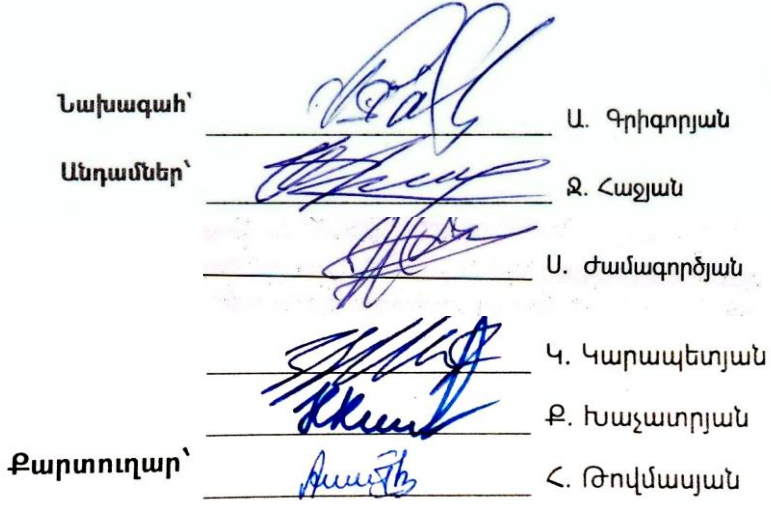 Նախագահ՝ Ա. Գրիգորյան
Անդամներ՝ Ջ. Հաջյան
Ս. Ժամագործյան
Կ. Կարապետյան
Ք. Խաչատրյան
Քարտուղար՝ Հ. Թովմասյան